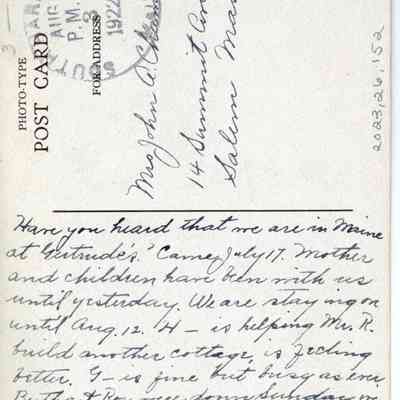 PHOTO-TYPE
POST CARD
FOR ADDRESS
AUG
P.M.
1922
Mrs John A.
14 Summit
Salem
2023.26.152
Have you heard that we are in Maine
at Gertrude's? Came July 17. Mother
and children have been with us
until yesterday. We are staying on
until Aug. 12. H – is helping Mrs. R.
build another cottage, is feeling
better. G – is fine but busy as ever.
Bertha & Roy were down Sunday